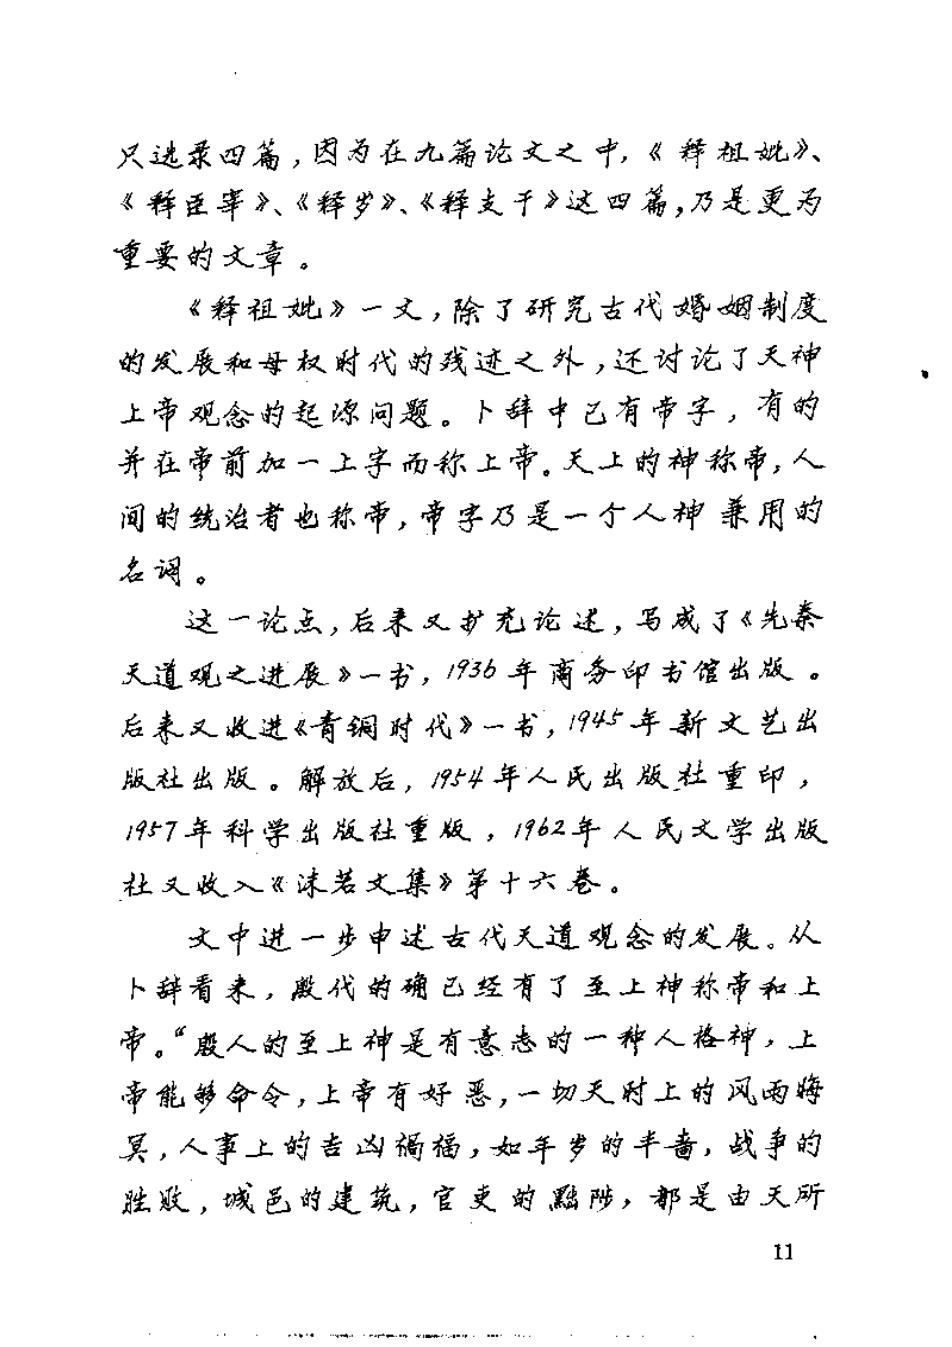 只选录四篇，因为在九篇论文之中，《释祖妣》、
《释臣宰》、《释岁》、《释支干》这四篇，乃是更为
重要的文章。
《释祖妣》一文，除了研究古代婚姻制度
的发展和母权时代的残迹之外，还讨论了天神
上帝观念的起源问题。卜辞中已有帝字，有的
并在帝前加一上字而称上帝。天上的神称帝，人
间的统治者也称帝，帝字乃是一个人神兼用的
名词。
这一论点，后来又扩充论述，写成了《先秦
天道观之进展》一书，1936年商务印书馆出版。
后来又收进《青铜时代》一书，1945年新文艺出
版社出版。解放后，1954年人民出版社重印，
1957年科学出版社重版，1962年人民文学出版
社又收入《沫若文集》第十六卷。
文中进一步申述古代天道观念的发展。从
卜辞看来，殷代的确已经有了至上神称帝和上
帝。“殷人的至上神是有意志的一种人格神，上
帝能够命令，上帝有好恶，一切天时上的风雨晦
冥，人事上的吉凶祸福，如年岁的丰啬，战争的
胜败，城邑的建筑，官吏的黜陟，都是由天所
11